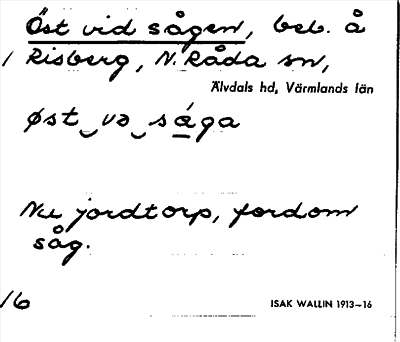 Öst vid sågen, beb. å
/ Risberg, N. Råda sn,
Älvdals hd, Värmlands län
øst‿və‿sága
Nu jordtorp, fordom
såg.
16
ISAK WALLIN 1913–16